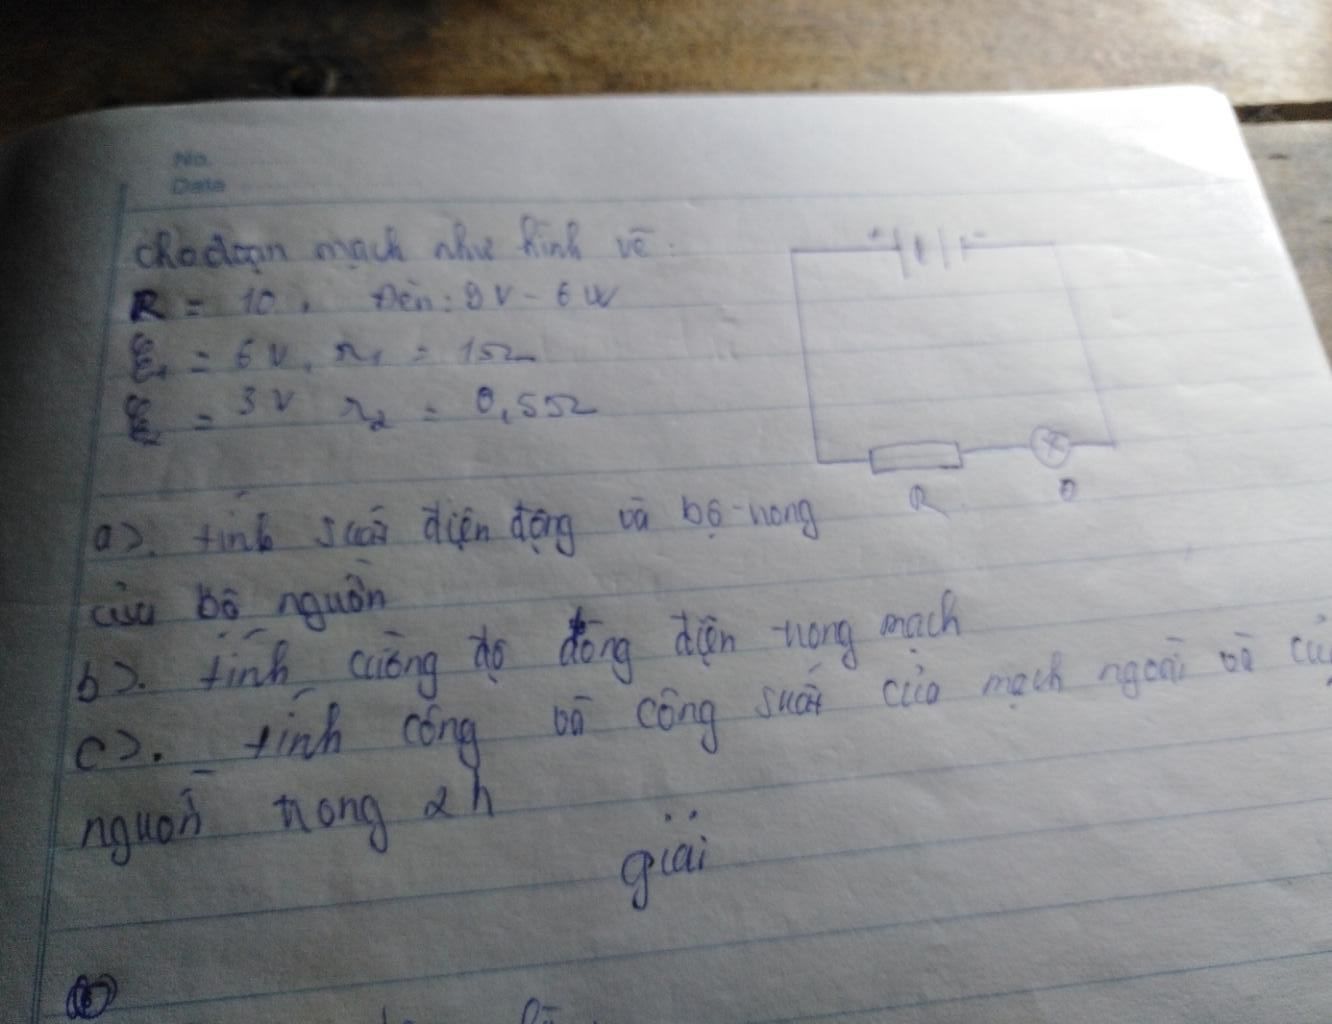 No.
Date
cho đoạn mạch như hình vẽ:
R = 10, Đèn: 9V - 6W
ξ1 = 6V, r1 = 1Ω
ξ2 = 3V r2 = 0,5Ω
+ -
R Đ
a). tính suất điện động và bộ trong
của bộ nguồn
b). tính cường độ dòng điện trong mạch
c). tính công và công suất của mạch ngoài và
nguồn trong 2h
giải